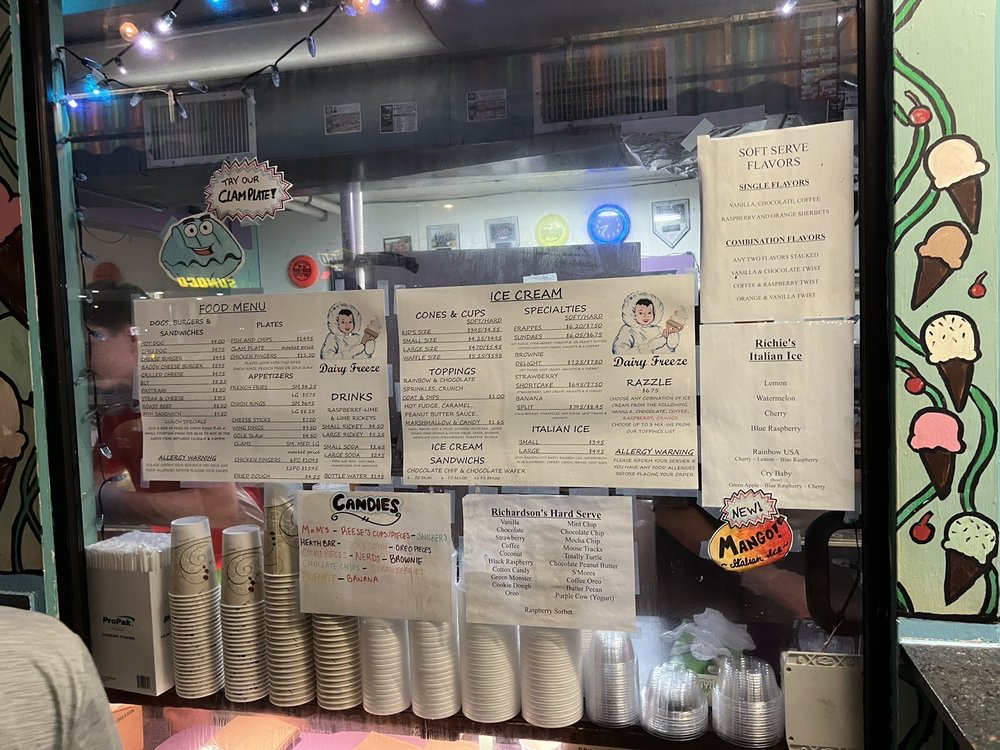 TRY OUR
CLAM PLATE!
FOOD MENU
DOGS, BURGERS &
SANDWICHES
HOT DOG $4.00
$4.75
CHEESE BURGER $4.95
BACON CHEESE BURGER $5.95
GRILLED CHEESE $4.75
BLT $5.25
PASTRAMI $8.50
STEAK & CHEESE
ROAST BEEF $8.50
FISH SANDWICH $8.50
LUNCH SPECIALS
ALLERGY WARNING
PLEASE INFORM YOUR SERVER IF YOU
HAVE ANY FOOD ALLERGIES BEFORE
PLACING YOUR ORDER.
PLATES
FISH AND CHIPS $14.95
CLAM PLATE market price
CHICKEN FINGERS $11.50
PLATES COME WITH TWO SIDES
ONION RINGS, FRENCH FRIES OR COLE SLAW
APPETIZERS
FRENCH FRIES SM $4.25
LG $5.75
ONION RINGS SM $6.95
LG $8.25
CHEESE STICKS $7.50
WING DINGS $8.50
COLE SLAW $4.50
CLAMS SM, MED, LG
market price
CHICKEN FINGERS 6PC $10.95
12PC $15.95
FRIED DOUGH $4.25
Dairy Freeze
DRINKS
RASPBERRY-LIME
& LIME RICKEYS
SMALL RICKEY $4.50
LARGE RICKEY $5.25
SMALL SODA $2.65
LARGE SODA $2.95
BOTTLE WATER $1.95
ICE CREAM
CONES & CUPS
SOFT/HARD
KID'S SIZE $3.95/$4.55
SMALL SIZE $4.25/$4.95
LARGE SIZE $4.70/$5.45
WAFFLE SIZE $5.25/$5.95
TOPPINGS
RAINBOW & CHOCOLATE
SPRINKLES, CRUNCH
COAT & DIPS $1.00
HOT FUDGE, CARAMEL,
PEANUT BUTTER SAUCE,
MARSHMALLOW & CANDY $1.65
ICE CREAM
SANDWICHS
CHOCOLATE CHIP & CHOCOLATE WAFER
SPECIALTIES
SOFT/HARD
FRAPPES $6.20/$7.50
SUNDAES $6.05/$6.75
BROWNIE
DELIGHT $7.25/$7.80
STRAWBERRY
SHORTCAKE $6.95/$7.50
BANANA
SPLIT $7.95/$8.45
ITALIAN ICE
SMALL $3.95
LARGE $4.95
Dairy Freeze
RAZZLE
$6.75
CHOOSE ANY COBINATION OF ICE
CREAM FROM THE FOLLOWING
VANILLA, CHOCOLATE, COFFEE,
RASPBERRY, ORANGE
CHOOSE UP TO 3 MIX-INS FROM
OUR TOPPINGS LIST
ALLERGY WARNING
PLEASE INFORM YOUR SERVER IF
YOU HAVE ANY FOOD ALLERGIES
BEFORE PLACING YOUR ORDER.
SOFT SERVE
FLAVORS
SINGLE FLAVORS
VANILLA, CHOCOLATE, COFFEE
RASPBERRY AND ORANGE SHERBETS
COMBINATION FLAVORS
ANY TWO FLAVORS STACKED
VANILLA & CHOCOLATE TWIST
COFFEE & RASPBERRY TWIST
ORANGE & VANILLA TWIST
Richie's
Italian Ice
Lemon
Watermelon
Cherry
Blue Raspberry
Rainbow USA
Cherry – Lemon – Blue Raspberry
Cry Baby
(Sour)
Green Apple – Blue Raspberry – Cherry
NEW!
MANGO!
~Italian Ice!
CANDIES
M&M'S - REESE'S CUPS/PIECES - SNICKERS
HEATH BAR - OREO PIECES
COOKIE PIECES - NERDS - BROWNIE
CHOCLATE CHIPS - STRAWBERRIES
PINEAPPLE - BANANA
Richardson's Hard Serve
Vanilla
Chocolate
Strawberry
Coffee
Coconut
Black Raspberry
Cotton Candy
Green Monster
Cookie Dough
Oreo
Mint Chip
Chocolate Chip
Mocha Chip
Moose Tracks
Totally Turtle
Chocolate Peanut Butter
S'Mores
Coffee Oreo
Butter Pecan
Purple Cow (Yogurt)
Raspberry Sorbet
ProPak